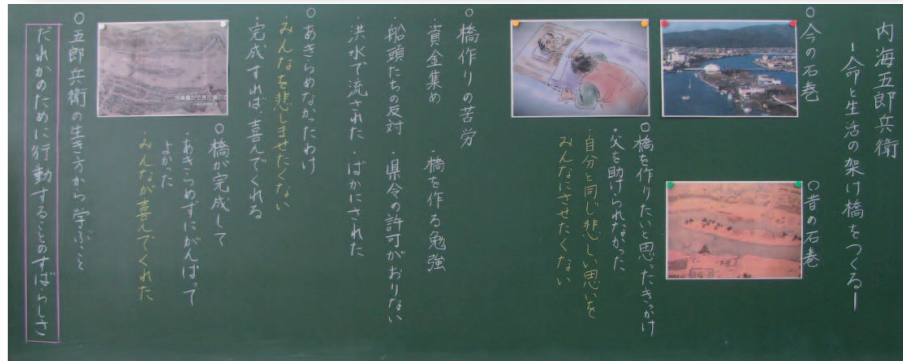 内海五郎兵衛
―命と生活の架け橋をつくる―
○今の石巻
○昔の石巻
○橋を作りたいと思ったきっかけ
・父を助けられなかった
・自分と同じ悲しい思いを
みんなにさせたくない
○橋作りの苦労
・資金集め ・橋を作る勉強
・船頭たちの反対 ・県令の許可がおりない
・洪水で流された ばかにされた
○あきらめなかったわけ
・みんなを悲しませたくない
・完成すれば喜んでくれる
○橋が完成して
・あきらめずにがんばって
よかった
・みんなが喜んでくれた
○五郎兵衛の生き方から学ぶこと
だれかのために行動することのすばらしさ